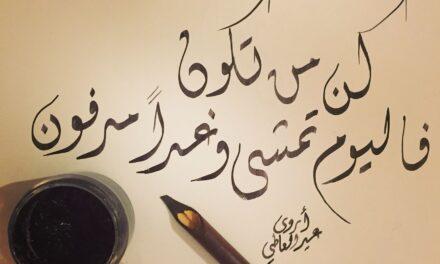 كن من تكون
فاليوم تمشي وغداً مدفون
أروى
عبدالعاطي